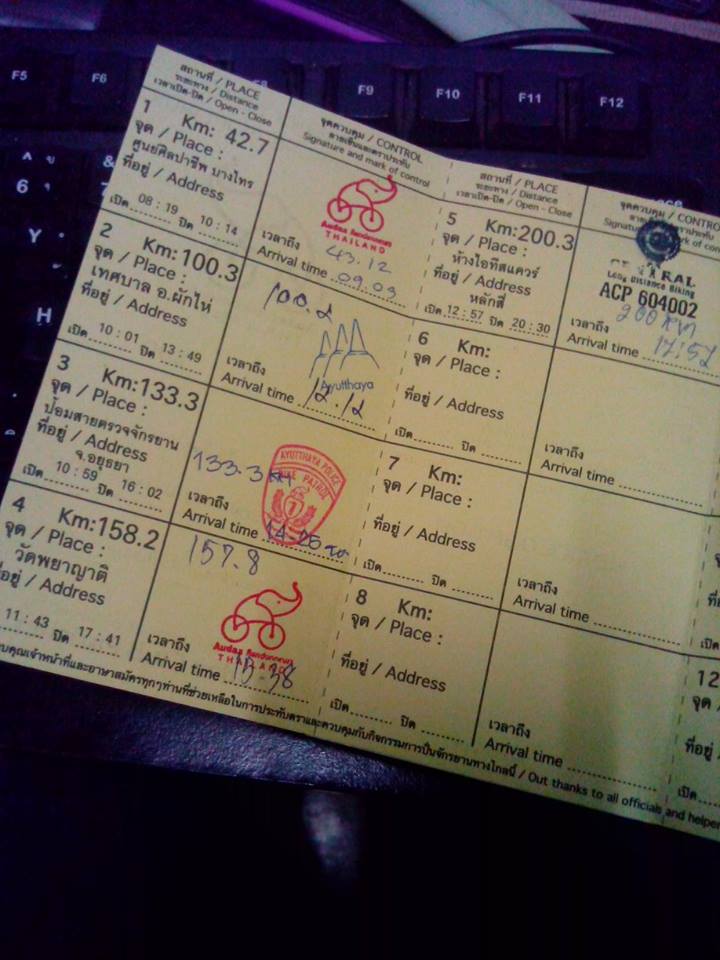 F5
F6
F9
F10
F11
F12
6
Y
H
สถานที่ / PLACE
ระยะทาง / Distance
เวลาเปิด-ปิด / Open - Close
จุดควบคุม / CONTROL
ลายเซ็นและตราประทับ
Signature and mark of control
1 Km: 42.7
จุด / Place :
ศูนย์ศิลปาชีพ บางไทร
ที่อยู่ / Address
เปิด 08 : 19 ปิด 10 : 14
Audax Randonneurs
THAILAND
43.12
เวลาถึง
Arrival time 09.03
2 Km:100.3
จุด / Place :
เทศบาล อ.ผักไห่
ที่อยู่ / Address
เปิด 10 : 01 ปิด 13 : 49
100.2
Ayutthaya
เวลาถึง
Arrival time 12.12
3 Km:133.3
จุด / Place :
ป้อมสายตรวจจักรยาน
ที่อยู่ / Address
จ.อยุธยา
เปิด 10 : 59 ปิด 16 : 02
133.3 KM
AYUTTHAYA POLICE
PATROL
7
เวลาถึง
Arrival time 14.25
4 Km:158.2
จุด / Place :
วัดพยาญาติ
ที่อยู่ / Address
11 : 43 ปิด 17 : 41
157.8
Audax Randonneurs
THAILAND
เวลาถึง
Arrival time 15.38
สถานที่ / PLACE
ระยะทาง / Distance
เวลาเปิด-ปิด / Open - Close
จุดควบคุม / CONTRO
5 Km:200.3
จุด / Place :
ห้างไอทีสแควร์
ที่อยู่ / Address
หลักสี่
เปิด 12 : 57 ปิด 20 : 30
Long Distance Biking
ACP 604002
200 KM
เวลาถึง
Arrival time 17:52
6 Km:
จุด / Place :
ที่อยู่ / Address
เปิด ปิด
เวลาถึง
Arrival time
7 Km:
จุด / Place :
ที่อยู่ / Address
เปิด ปิด
เวลาถึง
Arrival time
8 Km:
จุด / Place :
ที่อยู่ / Address
เปิด ปิด
เวลาถึง
Arrival time
12
ขอบคุณเจ้าหน้าที่และอาสาสมัครทุกๆท่านที่ช่วยเหลือในการประทับตราและควบคุมกับกิจกรรมการปั่นจักรยานทางไกลนี้ / Out thanks to all officials and helper